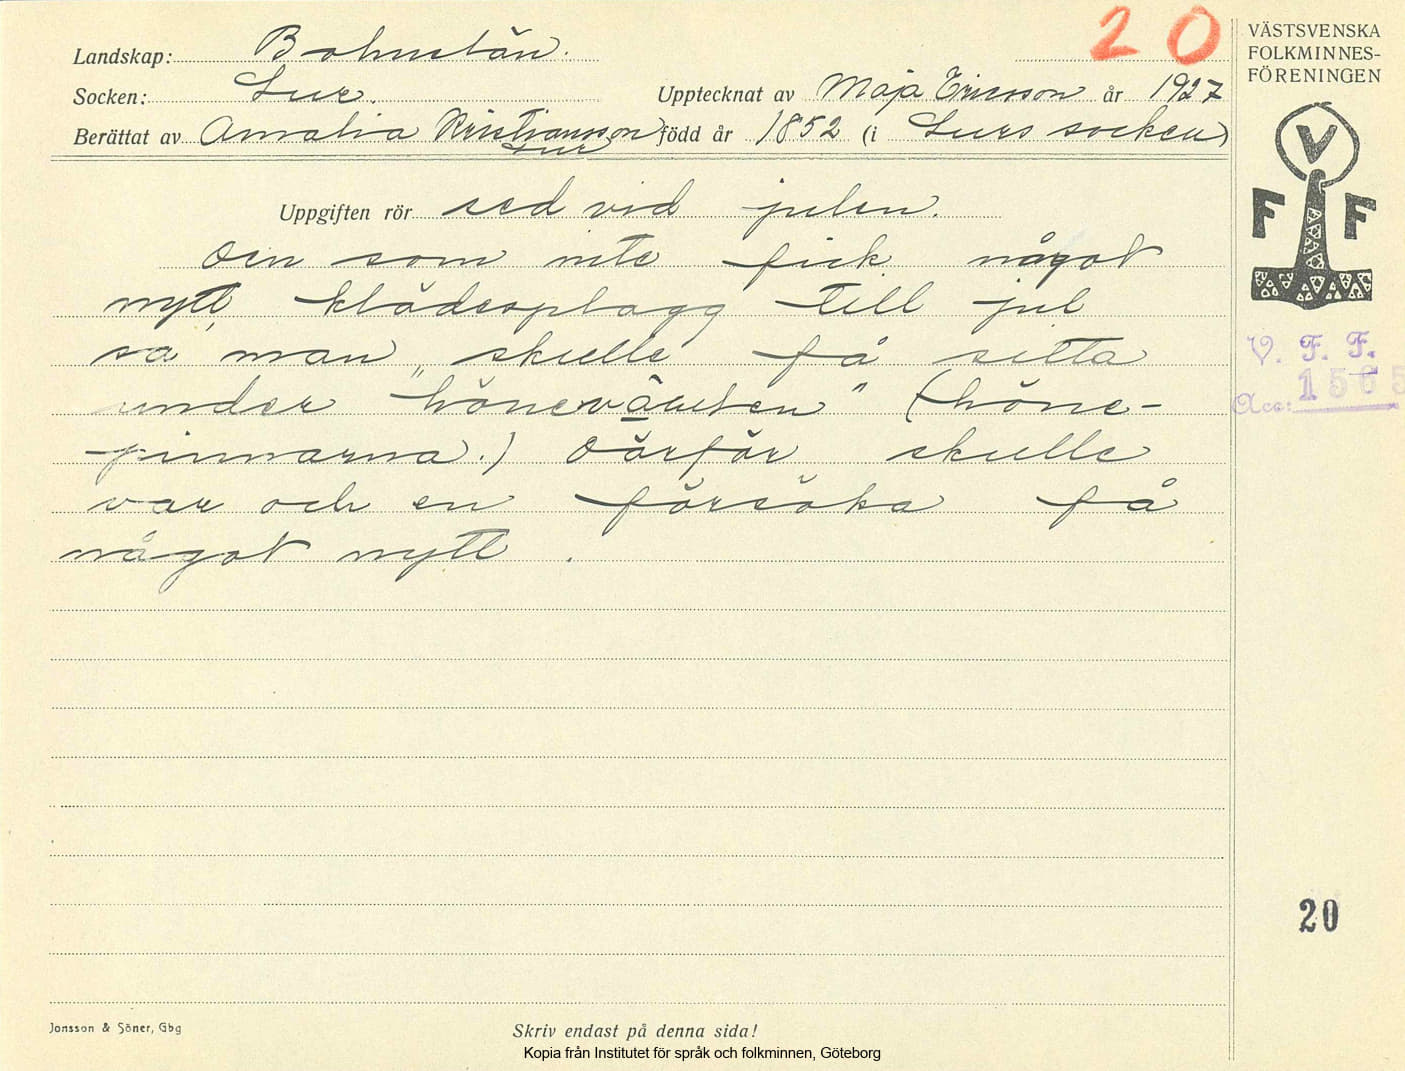 20
VÄSTSVENSKA
FOLKMINNES-
FÖRENINGEN
Landskap: Bohuslän.
Socken: Lur. Upptecknat av Maja Ericsson år 1927
Berättat av Amalia Kristiansson född år 1852 (i Lurs socken)
Lur
V
F F
Uppgiften rör sed vid julen.
Den som inte fick något
nytt klädesplagg till jul
sa man „skulle få sitta
under "hönevänten" (höne-
pinnarna.) Därför skulle
var och en försöka få
något nytt.
V. F. F.
Acc: 1565
20
Jonsson & Söner, Gbg
Skriv endast på denna sida!
Kopia från Institutet för språk och folkminnen, Göteborg